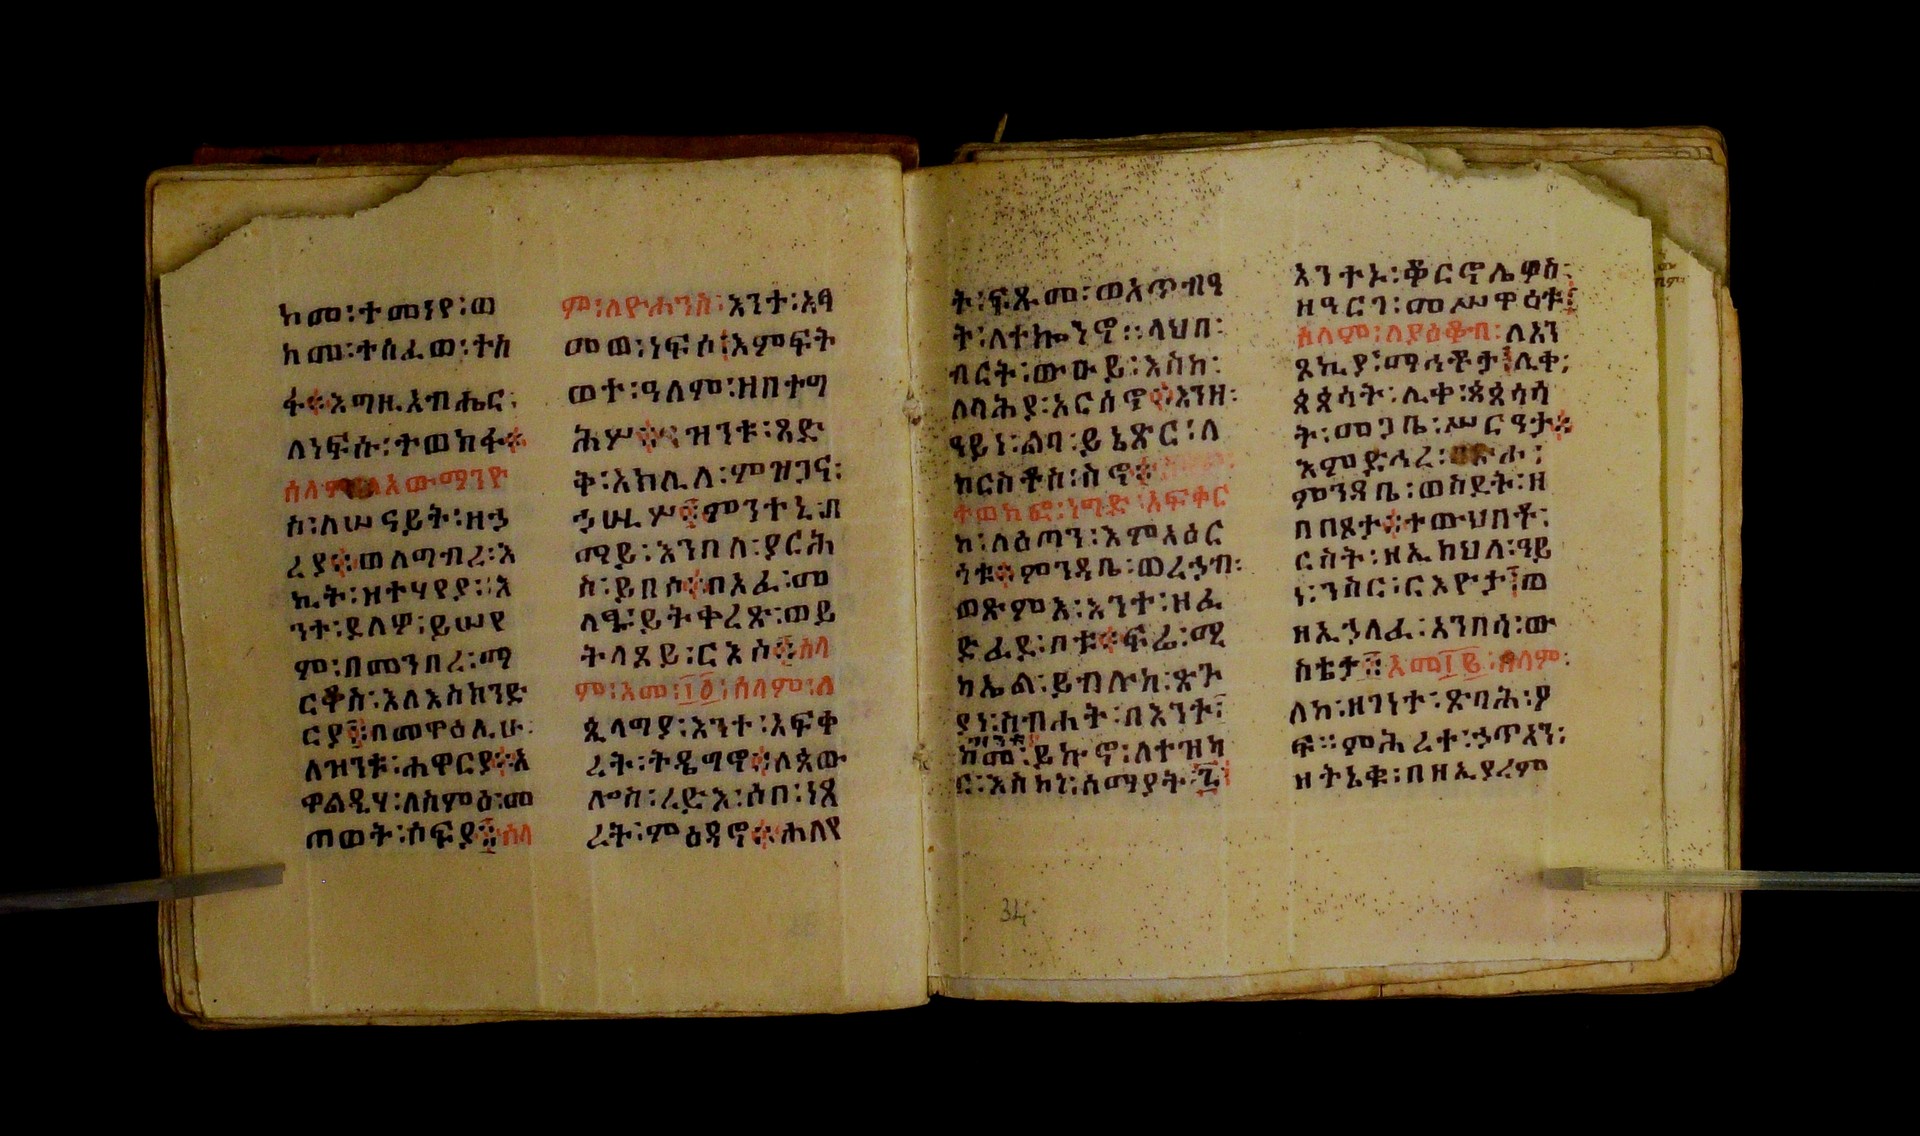 ከመ፡ተመነየ፡ወ
ከመ፡ተሰፈወ፡ተስ
ፋ፨እግዚአብሔር፡
ለነፍሱ፡ተወከፋ፨
ሰላም፡ለአውማንዮ
ስ፡ለሠናይት፡ዘኃ
ረያ፨ወለግብረ፡እ
ኪት፡ዘተሃየያ፡እ
ንተ፡ይለዎ፡ይሠየ
ም፡በመንበረ፡ማ
ርቆስ፡እለእስክንድ
ርያ፨በመዋዕሊሁ፡
ለዝንቱ፡ሐዋርያ፨አ
ዋልዲሃ፡ለስምዕ፡መ
ጠወት፡ሶፍያ፨ሰላ
ም፡ለዮሐንስ፡እንተ፡አፃ
መወ፡ነፍሶ፨እምፍት
ወተ፡ዓለም፡ዘበተግ
ሕሦ፨ዝንቱ፡ጻድ
ቅ፡አክሊለ፡ምዝጋና፡
ኃሢሦ፨ምንተኒ፡ብ
ሚይ፡እንበለ፡ያርሕ
ስ፡ይበሶ፨በአፈ፡መ
ላፄ፡ይትቀረጽ፡ወይ
ትላጸይ፡ርእስ፨ሰላ
ም፡እመ፡፲፬፡ሰላም፡ለ
ጲላግያ፡እንተ፡አፍቀ
ረት፡ትዴግኖ፨ለጳው
ሎስ፡ረድእ፡ሶበ፡ነጸ
ረት፡ምዕዳኖ፨ሐለየ
ት፡ፍጹመ፡ወአጥብዓ
ት፡ለተኰንኖ፡፡ላህበ፡
ብርት፡ውዑይ፡እስከ፡
ለባሕያ፡አርሰኖ፨እንዘ፡
ዓይነ፡ልባ፡ይኔጽር፡ለ
ክርስቶስ፡ስኖ፨
ተወከፎ፡ነግድ፡አፍቀር
ከ፡ለዕጣን፡እምአዕር
ሳቱ፨ምንዳቤ፡ወረኃብ፡
ወጽምእ፡እንተ፡ዘፈ
ድፈደ፡ቦቱ፨ፍሬ፡ሚ
ካኤል፡ይብሉከ፡ጽጉ
ያነ፡ስብሐት፡በእንተ፡
ዝንቱ
ከመ፡ይኩኖ፡ለተዝካ
ር፡እስከነ፡ሰማያት፡፯
እንተኒ፡ቆርኖሌዎስ፡
ዘዓርገ፡መሥዋዕቱ፨
ሰላም፡ለያዕቆብ፡ለአን
ጾኪያ፡ማኅቶታ፨ሊቀ፡
ጳጳሳት፡ሊቀ፡ጳጳሳሳ
ት፡መጋቤ፡ሥርዓታ፨
እምድኅረ፡በጽሐ፡
ምንዳቤ፡ወስደት፡ዘ
በበጾታ፨ተውህበቶ፡
ርስት፡ዘኢከህለ፡ዓይ
ነ፡ንስር፡ርእዮታ፨ወ
ዘኢኃለፈ፡አንበሳ፡ው
ስቴታ፨እመ፲፭፡ሰላም፡
ለከ፡ዘገነተ፡ጽባሕ፡ያ
ፍ፡፡ምሕረተ፡ኃጥአን፡
ዘትኔቁ፡በዘኢያረም